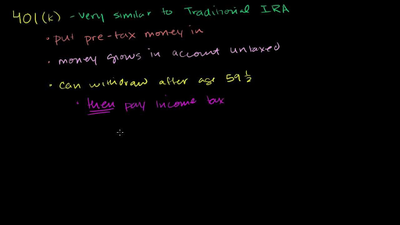 401(k) - very similar to Traditional IRA
• put pre-tax money in
• money grows in account untaxed
• can withdraw after age 59 1/2
• then pay income tax